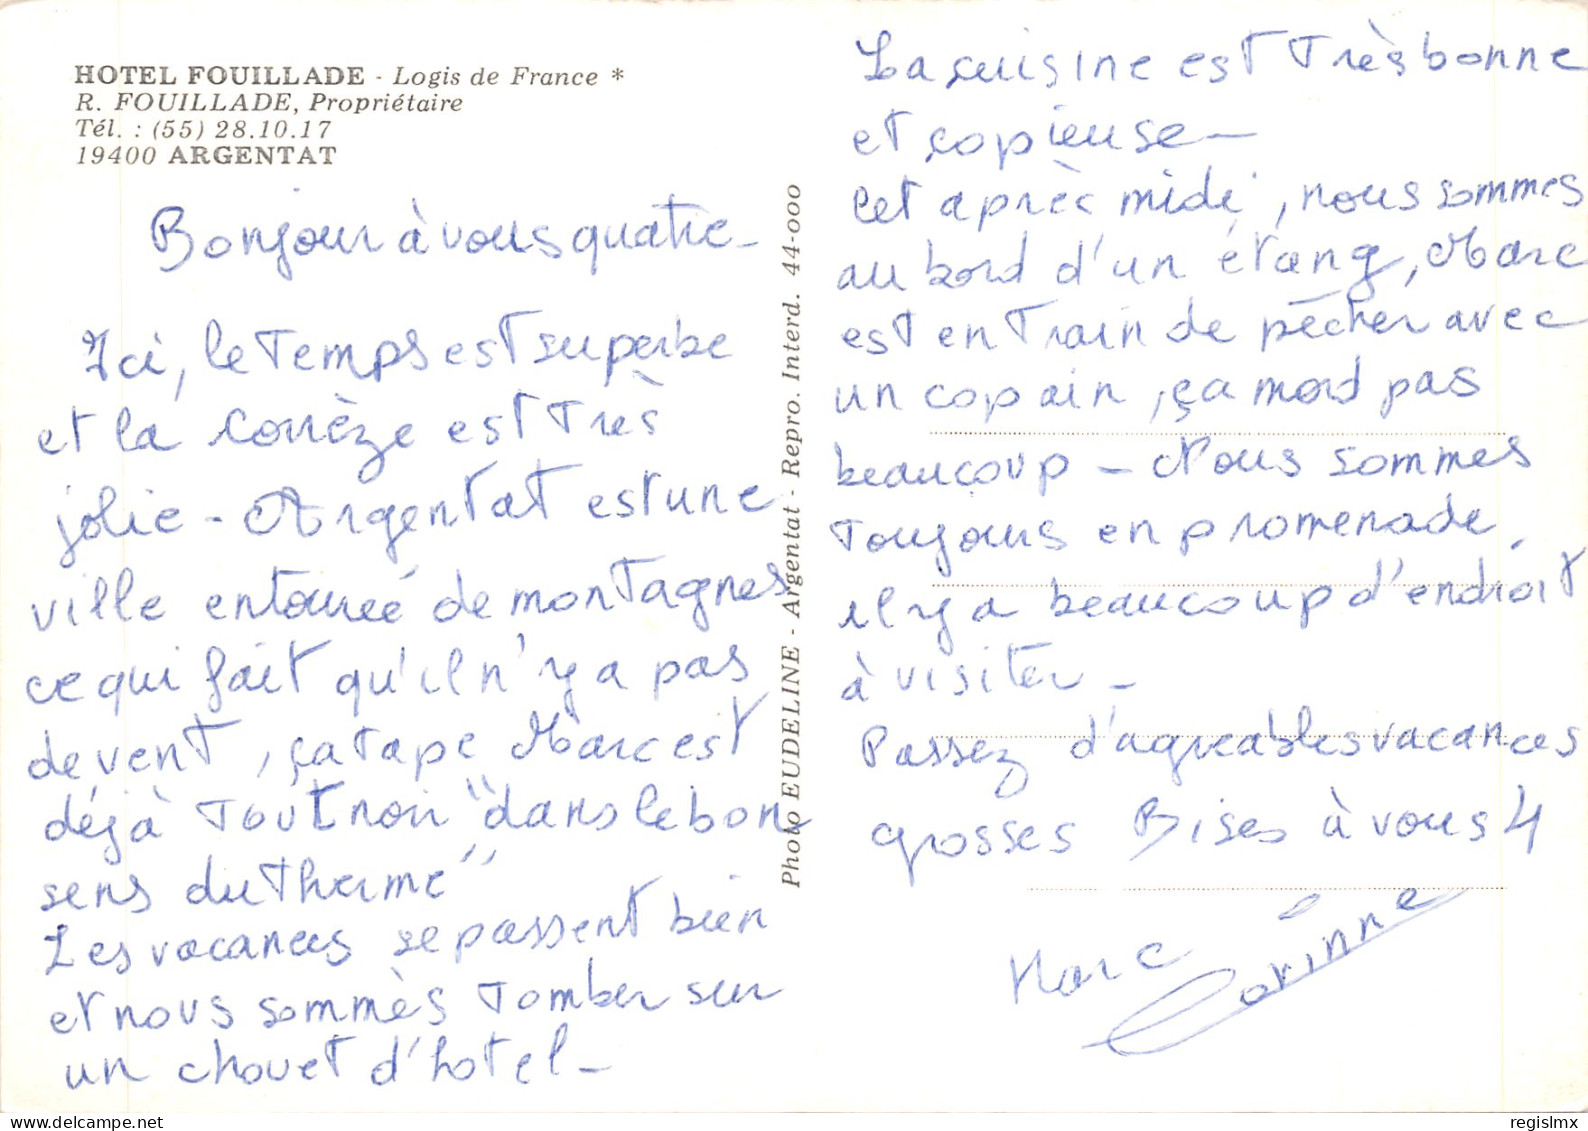 HOTEL FOUILLADE - Logis de France *
R. FOUILLADE, Propriétaire
Tél. : (55) 28.10.17
19400 ARGENTAT
Bonjour à vous quatre -
Ici, le temps est superbe
et la Corrèze est très
jolie - Argentat est une
ville entourée de montagnes
ce qui fait qu'il n'y a pas
de vent, ça tape Marc est
déjà tout noir "dans le bon
sens du therme"
Les vacances se passent bien
et nous sommès tomber sur
un chouet d'hotel -
Photo EUDELINE - Argentat - Repro. Interd. 44-000
La cuisine est très bonne
et copieuse -
Cet après midi, nous sommes
au bord d'un étang, Marc
est en train de pêcher avec
un copain, ça mord pas
beaucoup - Nous sommes
toujours en promenade,
il y a beaucoup d'endroit
à visiter -
Passez d'agreables vacances
grosses Bises à vous 4
Marc Corinne
regislmx